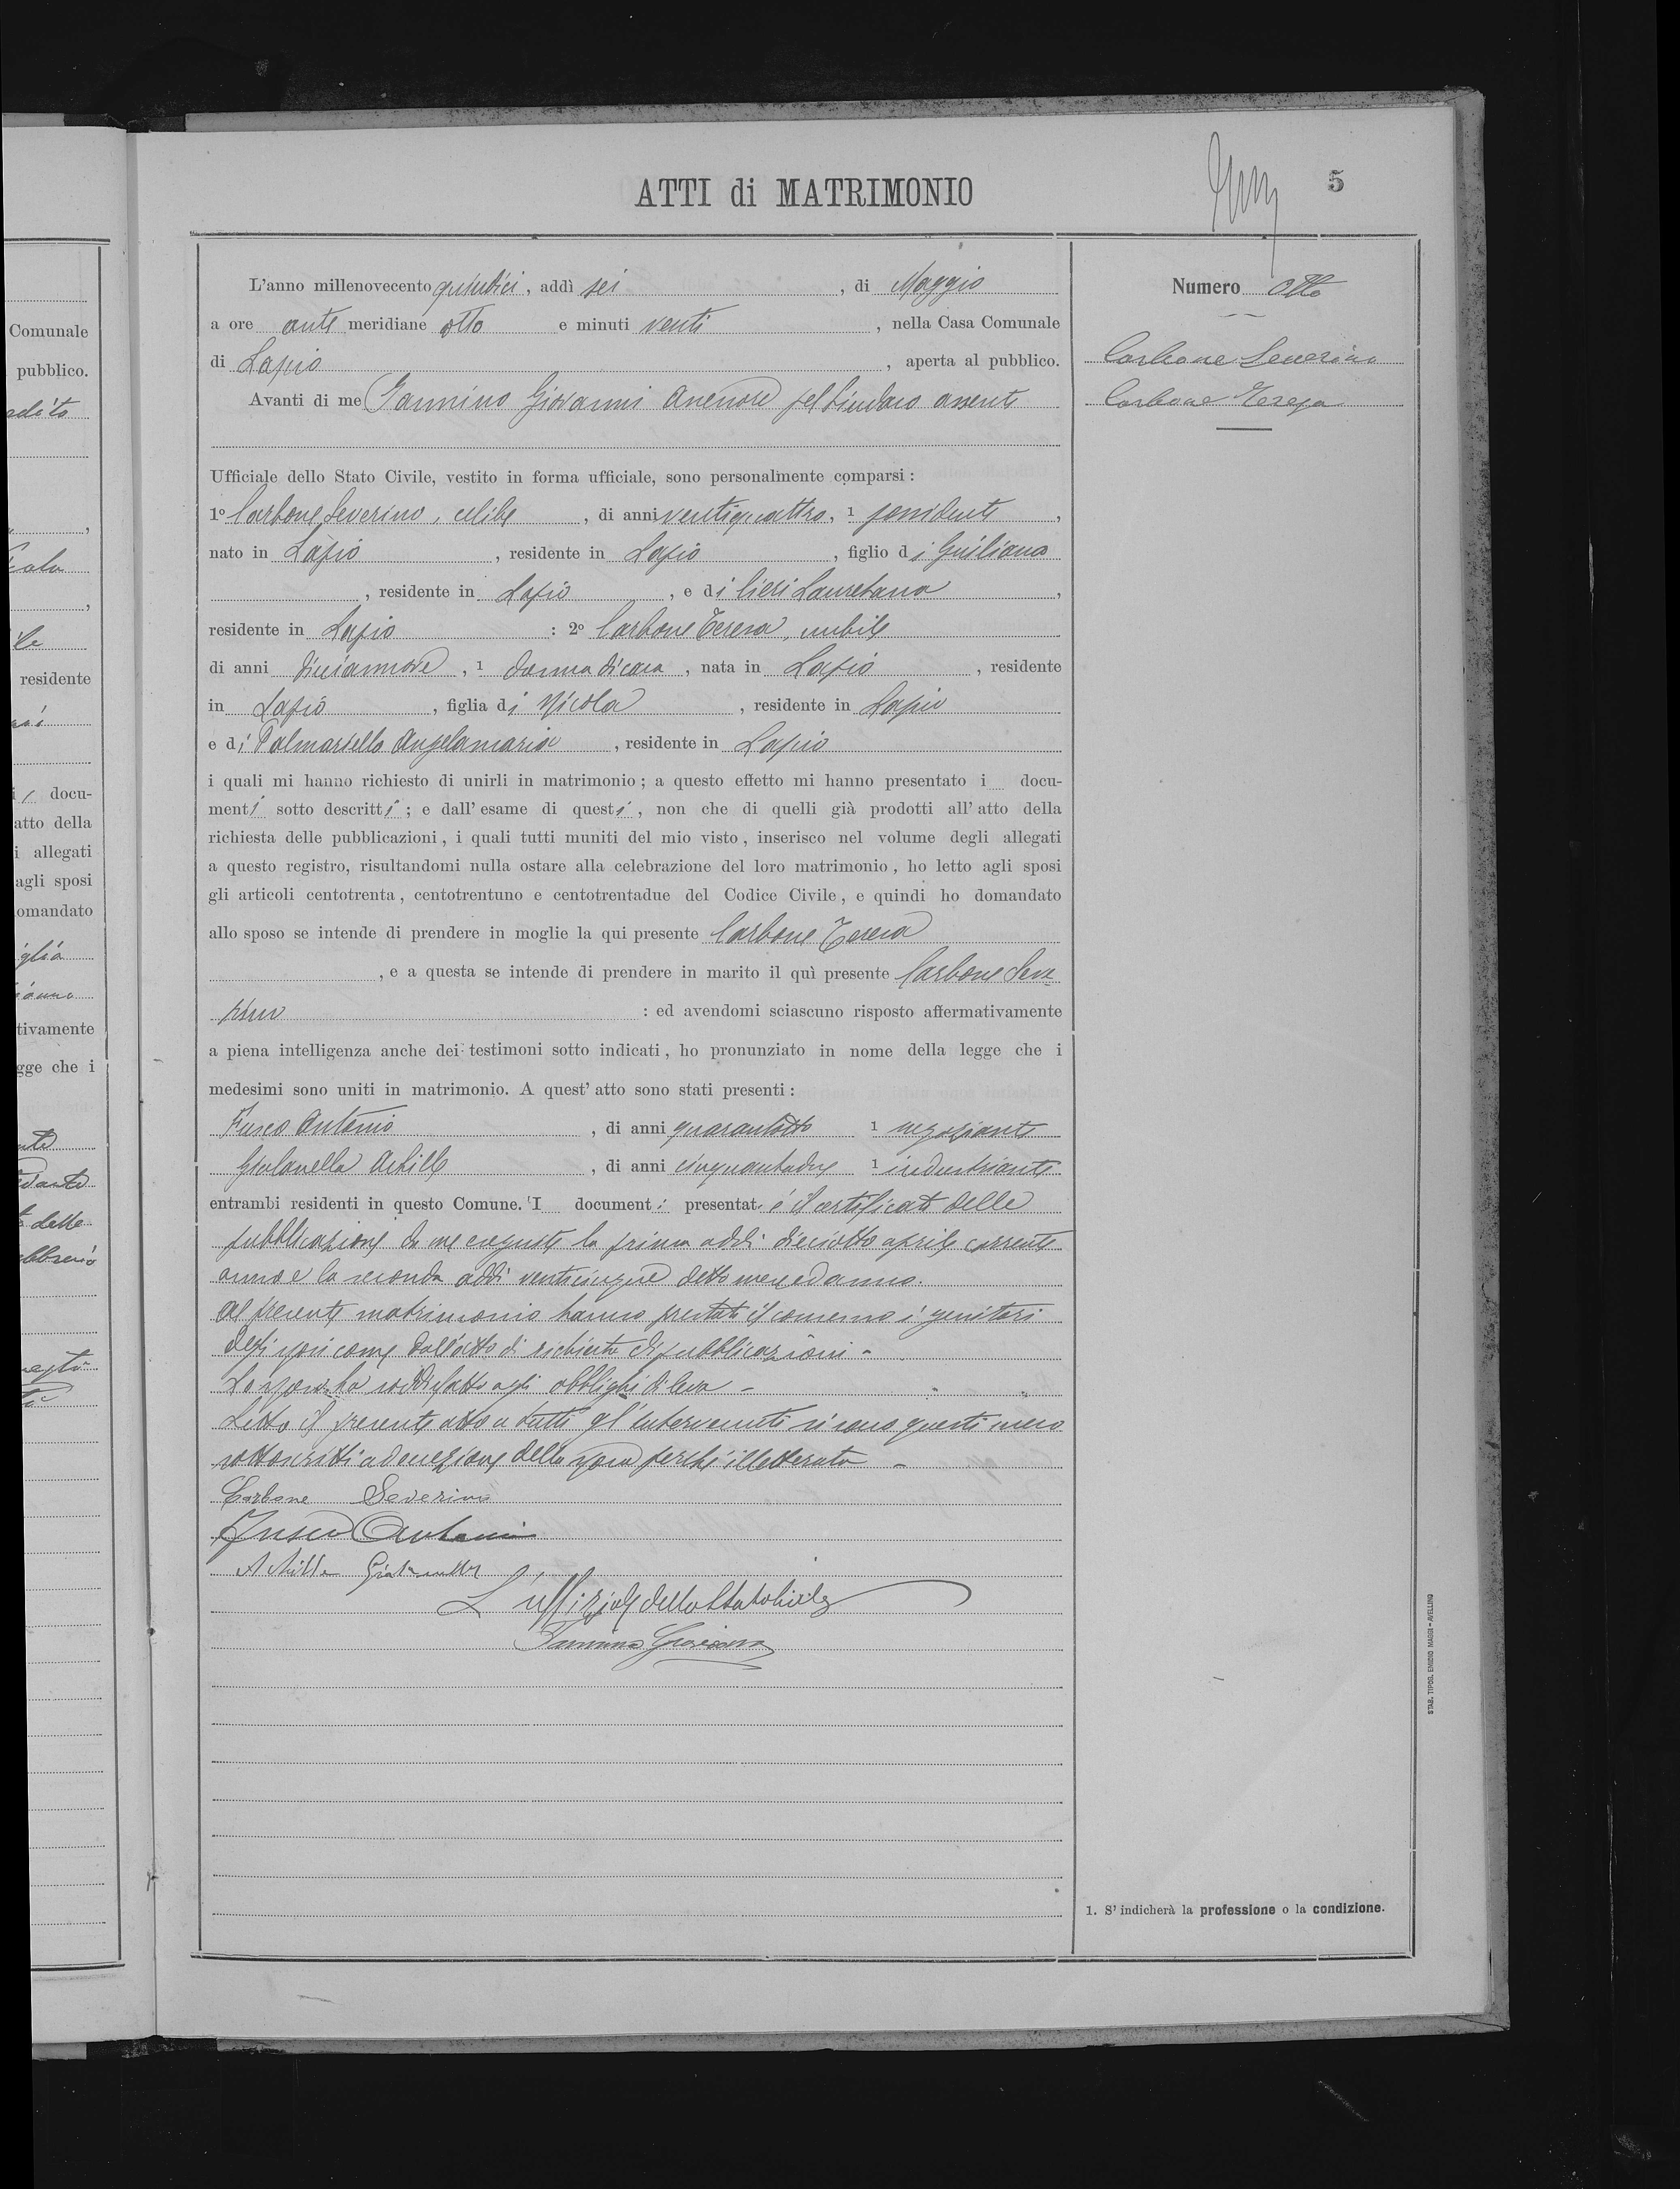 ATTI di MATRIMONIO
5
L'anno millenovecento quindici, addì sei, di Maggio
a ore anti meridiane otto e minuti venti, nella Casa Comunale
di Lapio, aperta al pubblico.
Avanti di me Iannino Giovanni Assessore pel Sindaco assente
Ufficiale dello Stato Civile, vestito in forma ufficiale, sono personalmente comparsi:
1º Carbone Severino, celibe, di anni ventiquattro, 1 possidente,
nato in Lapio, residente in Lapio, figlio di Giuliano
, residente in Lapio, e di Lauretana,
residente in Lapio: 2º Carbone Teresa, nubile
di anni diciannove, 1 donna di casa, nata in Lapio, residente
in Lapio, figlia di Nicola, residente in Lapio
e di Palmariello Angelamaria, residente in Lapio
i quali mi hanno richiesto di unirli in matrimonio; a questo effetto mi hanno presentato i docu-
menti sotto descritti; e dall'esame di questi, non che di quelli già prodotti all'atto della
richiesta delle pubblicazioni, i quali tutti muniti del mio visto, inserisco nel volume degli allegati
a questo registro, risultandomi nulla ostare alla celebrazione del loro matrimonio, ho letto agli sposi
gli articoli centotrenta, centotrentuno e centotrentadue del Codice Civile, e quindi ho domandato
allo sposo se intende di prendere in moglie la qui presente Carbone Teresa
, e a questa se intende di prendere in marito il quì presente Carbone Seve
rino: ed avendomi sciascuno risposto affermativamente
a piena intelligenza anche dei testimoni sotto indicati, ho pronunziato in nome della legge che i
medesimi sono uniti in matrimonio. A quest'atto sono stati presenti:
Fusco Antonio, di anni quarantotto 1 negoziante
Achille, di anni cinquantadue 1 industriante
entrambi residenti in questo Comune. I documenti presentat è il certificato delle
pubblicazione da me eseguite la prima addì dieciotto aprile corrente
anno e la seconda addì venticinque detto mese ed anno.
Al presente matrimonio hanno prestato il consenso i genitori
degli sposi come dall'atto di richiesta di pubblicazioni -
Lo sposo ha soddisfatto agli obblighi di leva -
Letto il presente atto a tutti gl'intervenuti si sono questi meco
sottoscritti ad eccezione della sposa perchè illetterata -
Carbone Severino
Fusco Antonio
Achille
L'uffiziale dello Stato Civile
Iannino Giovanni
Numero otto
Carbone Severino
Carbone Teresa
1. S'indicherà la professione o la condizione.
STAB. TIPOG. EMIDIO MAGGI - AVELLINO
Comunale
pubblico.
residente
docu-
atto della
i allegati
agli sposi
omandato
tivamente
gge che i